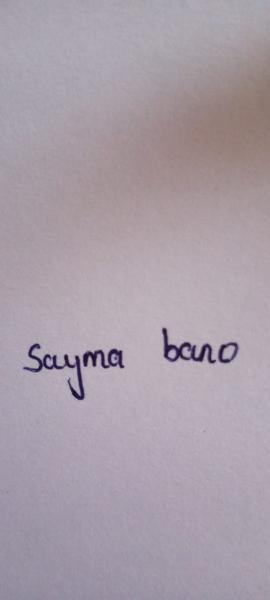 Sayma bano